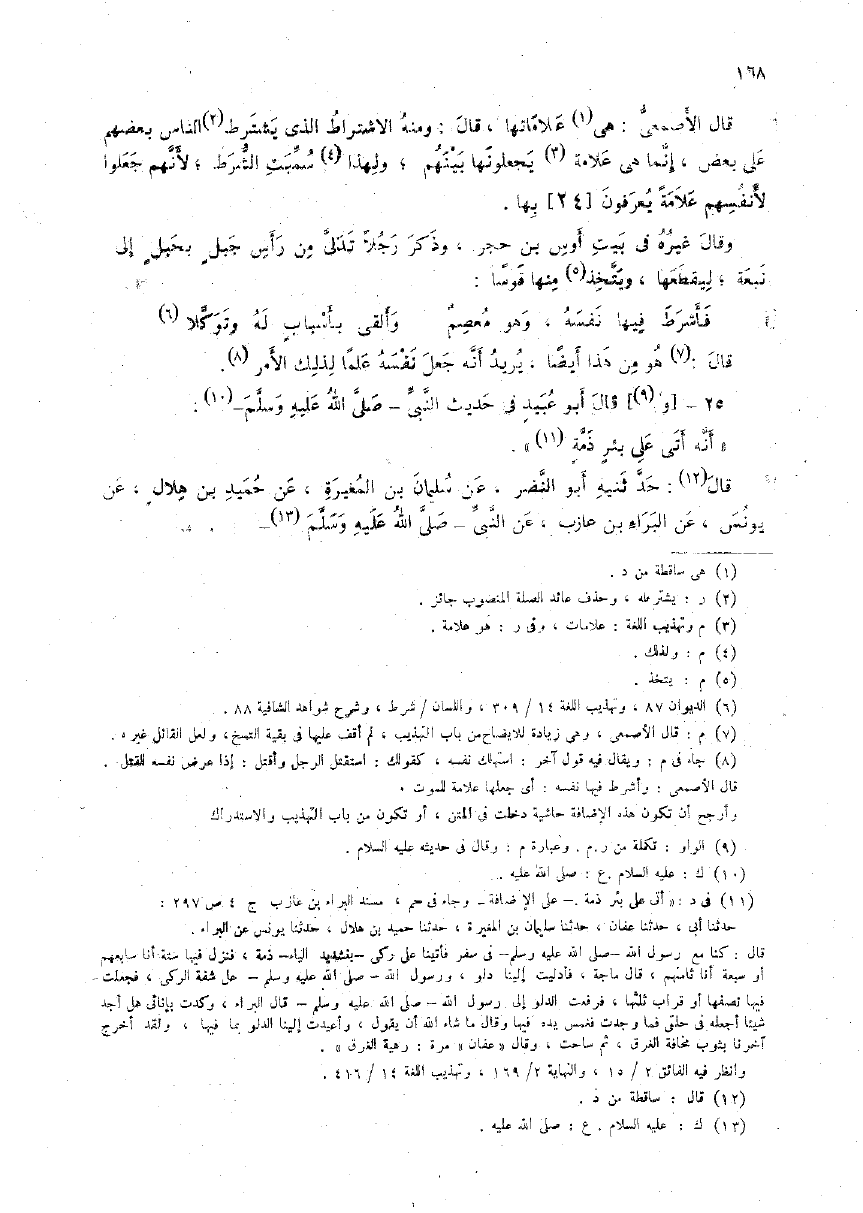 ١٦٨
قال الأصمعىُّ : هى (١) عَلامَاتها ، قالَ : ومنهُ الاشتراطُ الذى يَشتَرط (٢) الناس بعضهم
عَلى بعض ، إنَّما هى عَلامة (٣) يَجعلونَها بَيْنَهُم ؛ ولِهذا (٤) سُمِّيَتِ الشُّرَطُ ؛ لأنَّهم جَعَلوا
لأنفُسِهِم عَلَامَةً يُعرَفونَ [٢٤] بِها .
وقالَ غيرُهُ فى بَيتِ أوسِ بن حجر ، وذَكَرَ رَجُلاً تَدَلىَّ مِن رَأسِ جَبلٍ بحَبلٍ إلى
نَبعَة ؛ لِيَقطَعَها ، ويَتَّخِذ (٥) مِنها قَوسًا :
فَأشرَطَ فِيها نَفسَهُ ، وَهو مُعصِمٌ وَألقى بأسْبابٍ لَهُ وتَوَكَّلا (٦)
قالَ : (٧) هُو مِن هَذا أيضًا ، يُرِيدُ أنَّه جَعلَ نَفْسَهُ عَلَمًا لِذلِك الأمر (٨) .
٢٥ – [و (٩)] قالَ أبو عُبَيد فى حَديث النَّبىِّ – صَلىَّ اللهُ عَلَيهِ وَسَلَّمَ – (١٠) :
« أنَّه أتَى عَلى بئرٍ ذَمَّةٍ (١١) » .
قالَ (١٢) : حَدَّ ثَنيهِ أبو النَّضر ، عَن سُليمانَ بن المُغيرَةِ ، عَن حُمَيدِ بن هِلالٍ ، عَن
يونُسَ ، عَن البَرَاءِ بن عازب ، عَن النَّبىِّ – صَلىَّ اللهُ عَلَيهِ وَسَلَّمَ (١٣) –
(١) هى ساقطة من د .
(٢) ر : يشترطه ، وحذف عائد الصلة المنصوب جائز .
(٣) م وتهذيب اللغة : علامات ، وفى ر : هو علامة .
(٤) م : ولذلك .
(٥) م : يتخذ .
(٦) الديوان ٨٧ ، وتهذيب اللغة ١٤ / ٣٠٩ ، واللسان / شرط ، وشرح شواهد الشافية ٨٨ .
(٧) م : قال الأصمعى ، وهى زيادة للايضاح من باب التهذيب ، لم أقف عليها فى بقية النسخ ، ولعل القائل غيره .
(٨) جاء فى م : ويقال فيه قول آخر : استهلك نفسه ، كقولك : استقتل الرجل وأقتل : إذا عرض نفسه للقتل .
قال الأصمعى : وأشرط فيها نفسه : أى جعلها علامة للموت .
وأرجح أن تكون هذه الإضافة حاشية دخلت فى المتن ، أو تكون من باب التهذيب والاستدراك
(٩) الواو : تكملة من ر . م . وعبارة م : وقال فى حديثه عليه السلام .
(١٠) ك : عليه السلام . ع : صلى الله عليه .
(١١) فى د : « أتى على بئر ذمة . – على الإضافة – وجاء فى حم ، مسند البراء بن عازب ج ٤ ص ٢٩٧ :
حدثنا أبى ، حدثنا عفان ، حدثنا سليمان بن المغيرة ، حدثنا حميد بن هلال ، حدثنا يونس عن البراء .
قال : كنا مع رسول الله –صلى الله عليه وسلم– فى سفر فأتينا على ركى –بتشديد الياء– ذمة ، فنزل فيها ستة أنا سابعهم
أو سبعة أنا ثامنهم ، قال ماجة ، فأدليت إلينا دلو ، ورسول الله – صلى الله عليه وسلم – على شفة الركى ، فجعلت –
فيها نصفها أو قراب ثلثها ، فرفعت الدلو إلى رسول الله – صلى الله عليه وسلم – قال البراء ، وكدت بإنائى هل أجد
شيئا أجعله فى حلقى فما وجدت فغمس يده فيها وقال ما شاء الله أن يقول ، وأعيدت إلينا الدلو بما فيها ، ولقد أخرج
آخرنا بثوب مخافة الغرق ، ثم ساحت ، وقال « عفان » مرة : رهبة الغرق » .
وانظر فيه الفائق ٢ / ١٥ ، والنهاية ٢/ ١٦٩ ، وتهذيب اللغة ١٤ / ٤١٦ .
(١٢) قال : ساقطة من د .
(١٣) ك : عليه السلام . ع : صلى الله عليه .